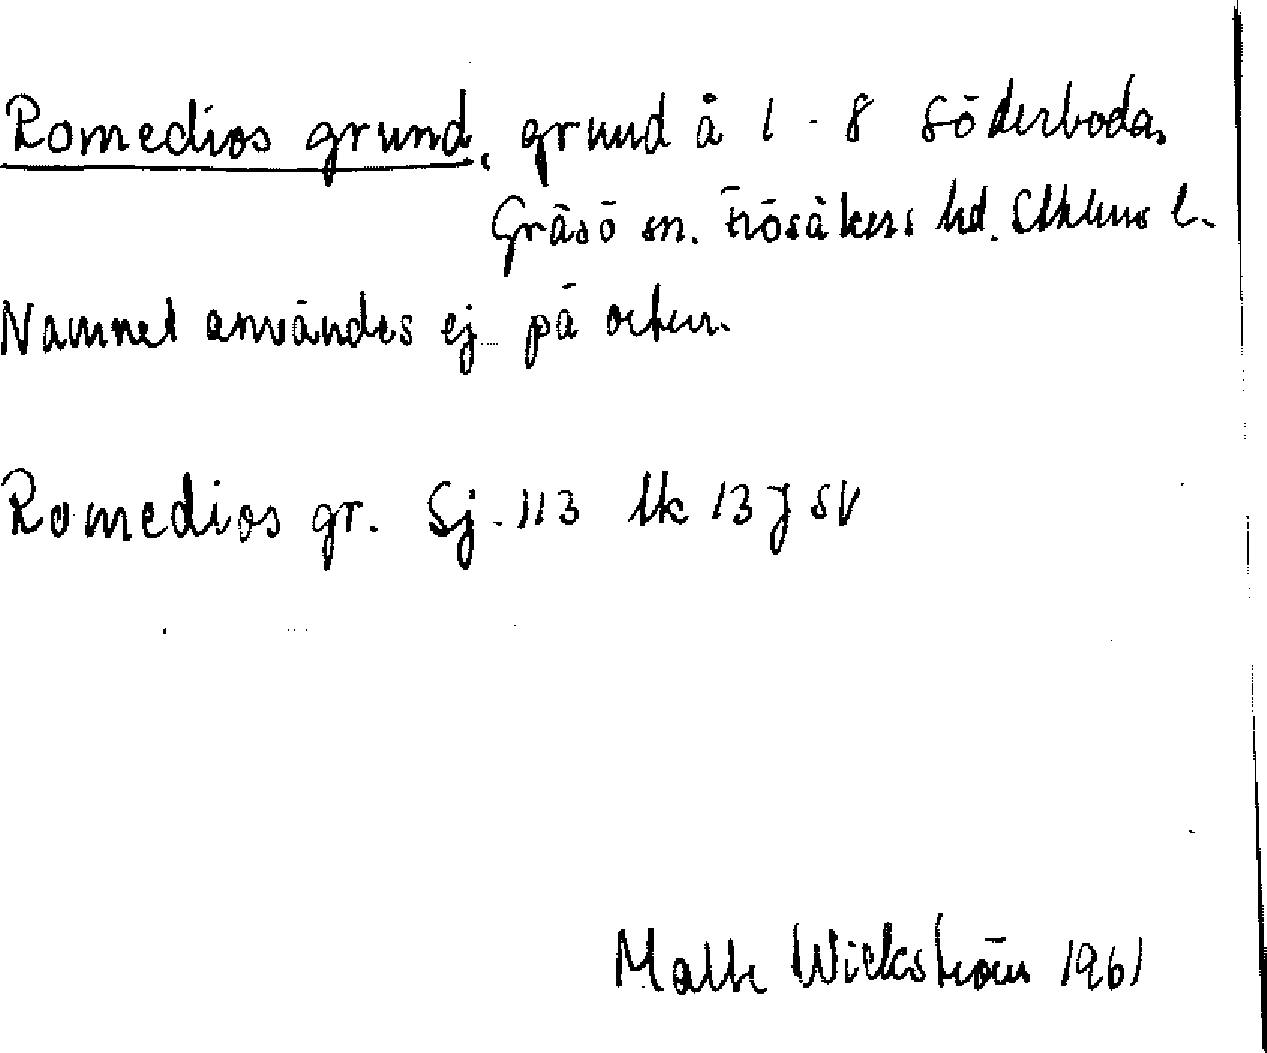 Romedios grund, grund å 1 - 8 Söderboda,
Gräsö sn. Frösåkers hd. Sthlms l.
Namnet användes ej på orten.
Romedios gr. Sj. 113 lk 13 J SV
Malte Wickström 1961